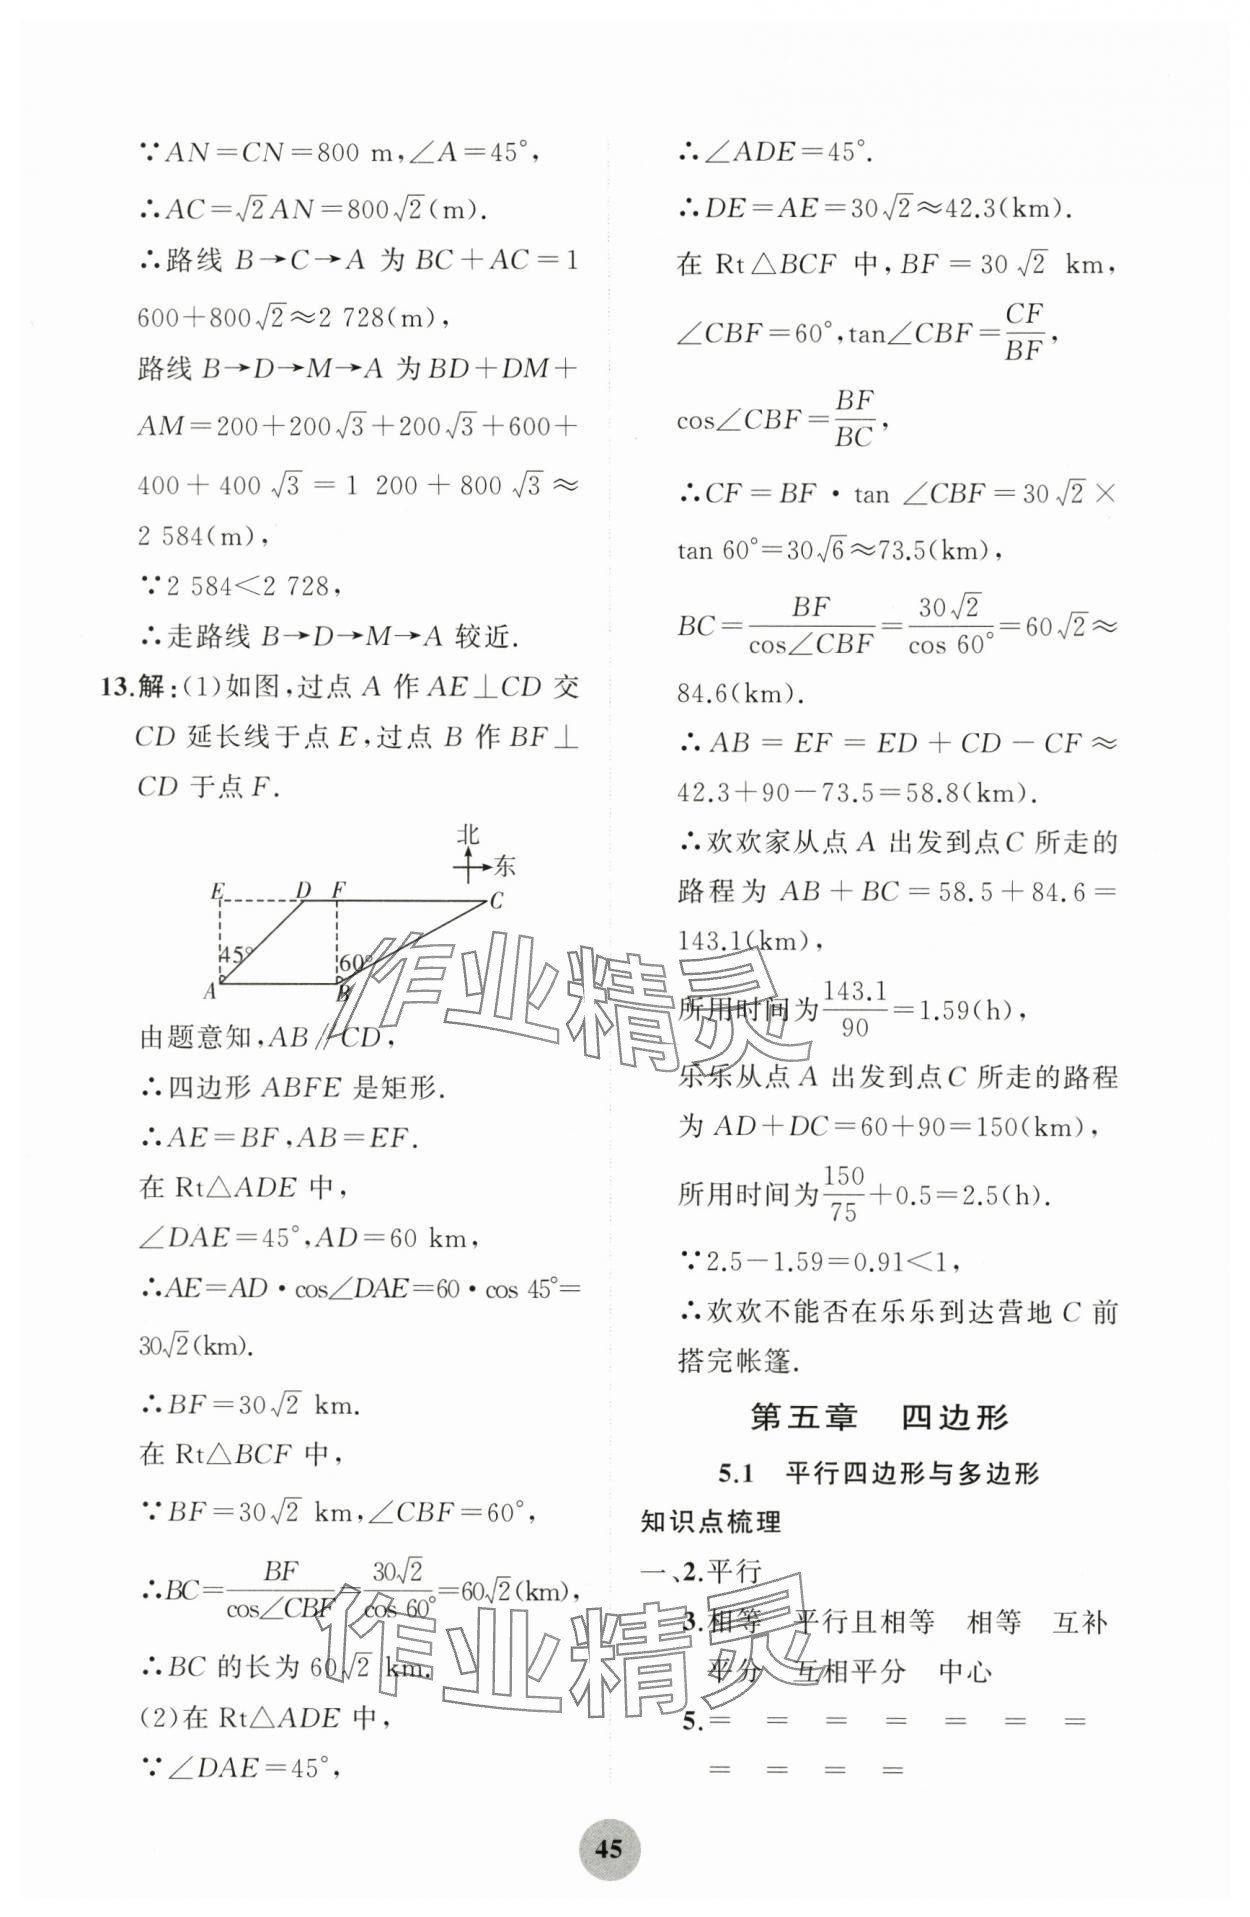 ∵AN=CN=800 m,∠A=45°,
∴AC=√2AN=800√2(m).
∴路线 B→C→A 为 BC+AC=1
600+800√2≈2 728(m),
路线 B→D→M→A 为 BD+DM+
AM=200+200√3+200√3+600+
400+400√3=1 200+800√3≈
2 584(m),
∵2 584<2 728,
∴走路线 B→D→M→A 较近.
13.解:(1)如图,过点 A 作 AE⊥CD 交
CD 延长线于点 E,过点 B 作 BF⊥
CD 于点 F.
北
东
E D F C
45° 60°
A B
由题意知,AB∥CD,
∴四边形 ABFE 是矩形.
∴AE=BF,AB=EF.
在 Rt△ADE 中,
∠DAE=45°,AD=60 km,
∴AE=AD·cos∠DAE=60·cos 45°=
30√2(km).
∴BF=30√2 km.
在 Rt△BCF 中,
∵BF=30√2 km,∠CBF=60°,
∴BC=BF/cos∠CBF=30√2/cos 60°=60√2(km),
∴BC 的长为 60√2 km.
(2)在 Rt△ADE 中,
∵∠DAE=45°,
∴∠ADE=45°.
∴DE=AE=30√2≈42.3(km).
在 Rt△BCF 中,BF=30√2 km,
∠CBF=60°,tan∠CBF=CF/BF,
cos∠CBF=BF/BC,
∴CF=BF·tan ∠CBF=30√2×
tan 60°=30√6≈73.5(km),
BC=BF/cos∠CBF=30√2/cos 60°=60√2≈
84.6(km).
∴AB=EF=ED+CD-CF≈
42.3+90-73.5=58.8(km).
∴欢欢家从点 A 出发到点 C 所走的
路程为 AB+BC=58.5+84.6=
143.1(km),
所用时间为143.1/90=1.59(h),
乐乐从点 A 出发到点 C 所走的路程
为 AD+DC=60+90=150(km),
所用时间为150/75+0.5=2.5(h).
∵2.5-1.59=0.91<1,
∴欢欢不能否在乐乐到达营地 C 前
搭完帐篷.
第五章 四边形
5.1 平行四边形与多边形
知识点梳理
一、2.平行
3.相等 平行且相等 相等 互补
平分 互相平分 中心
5.= = = = = = =
= = = =
45
作业精灵
作业精灵